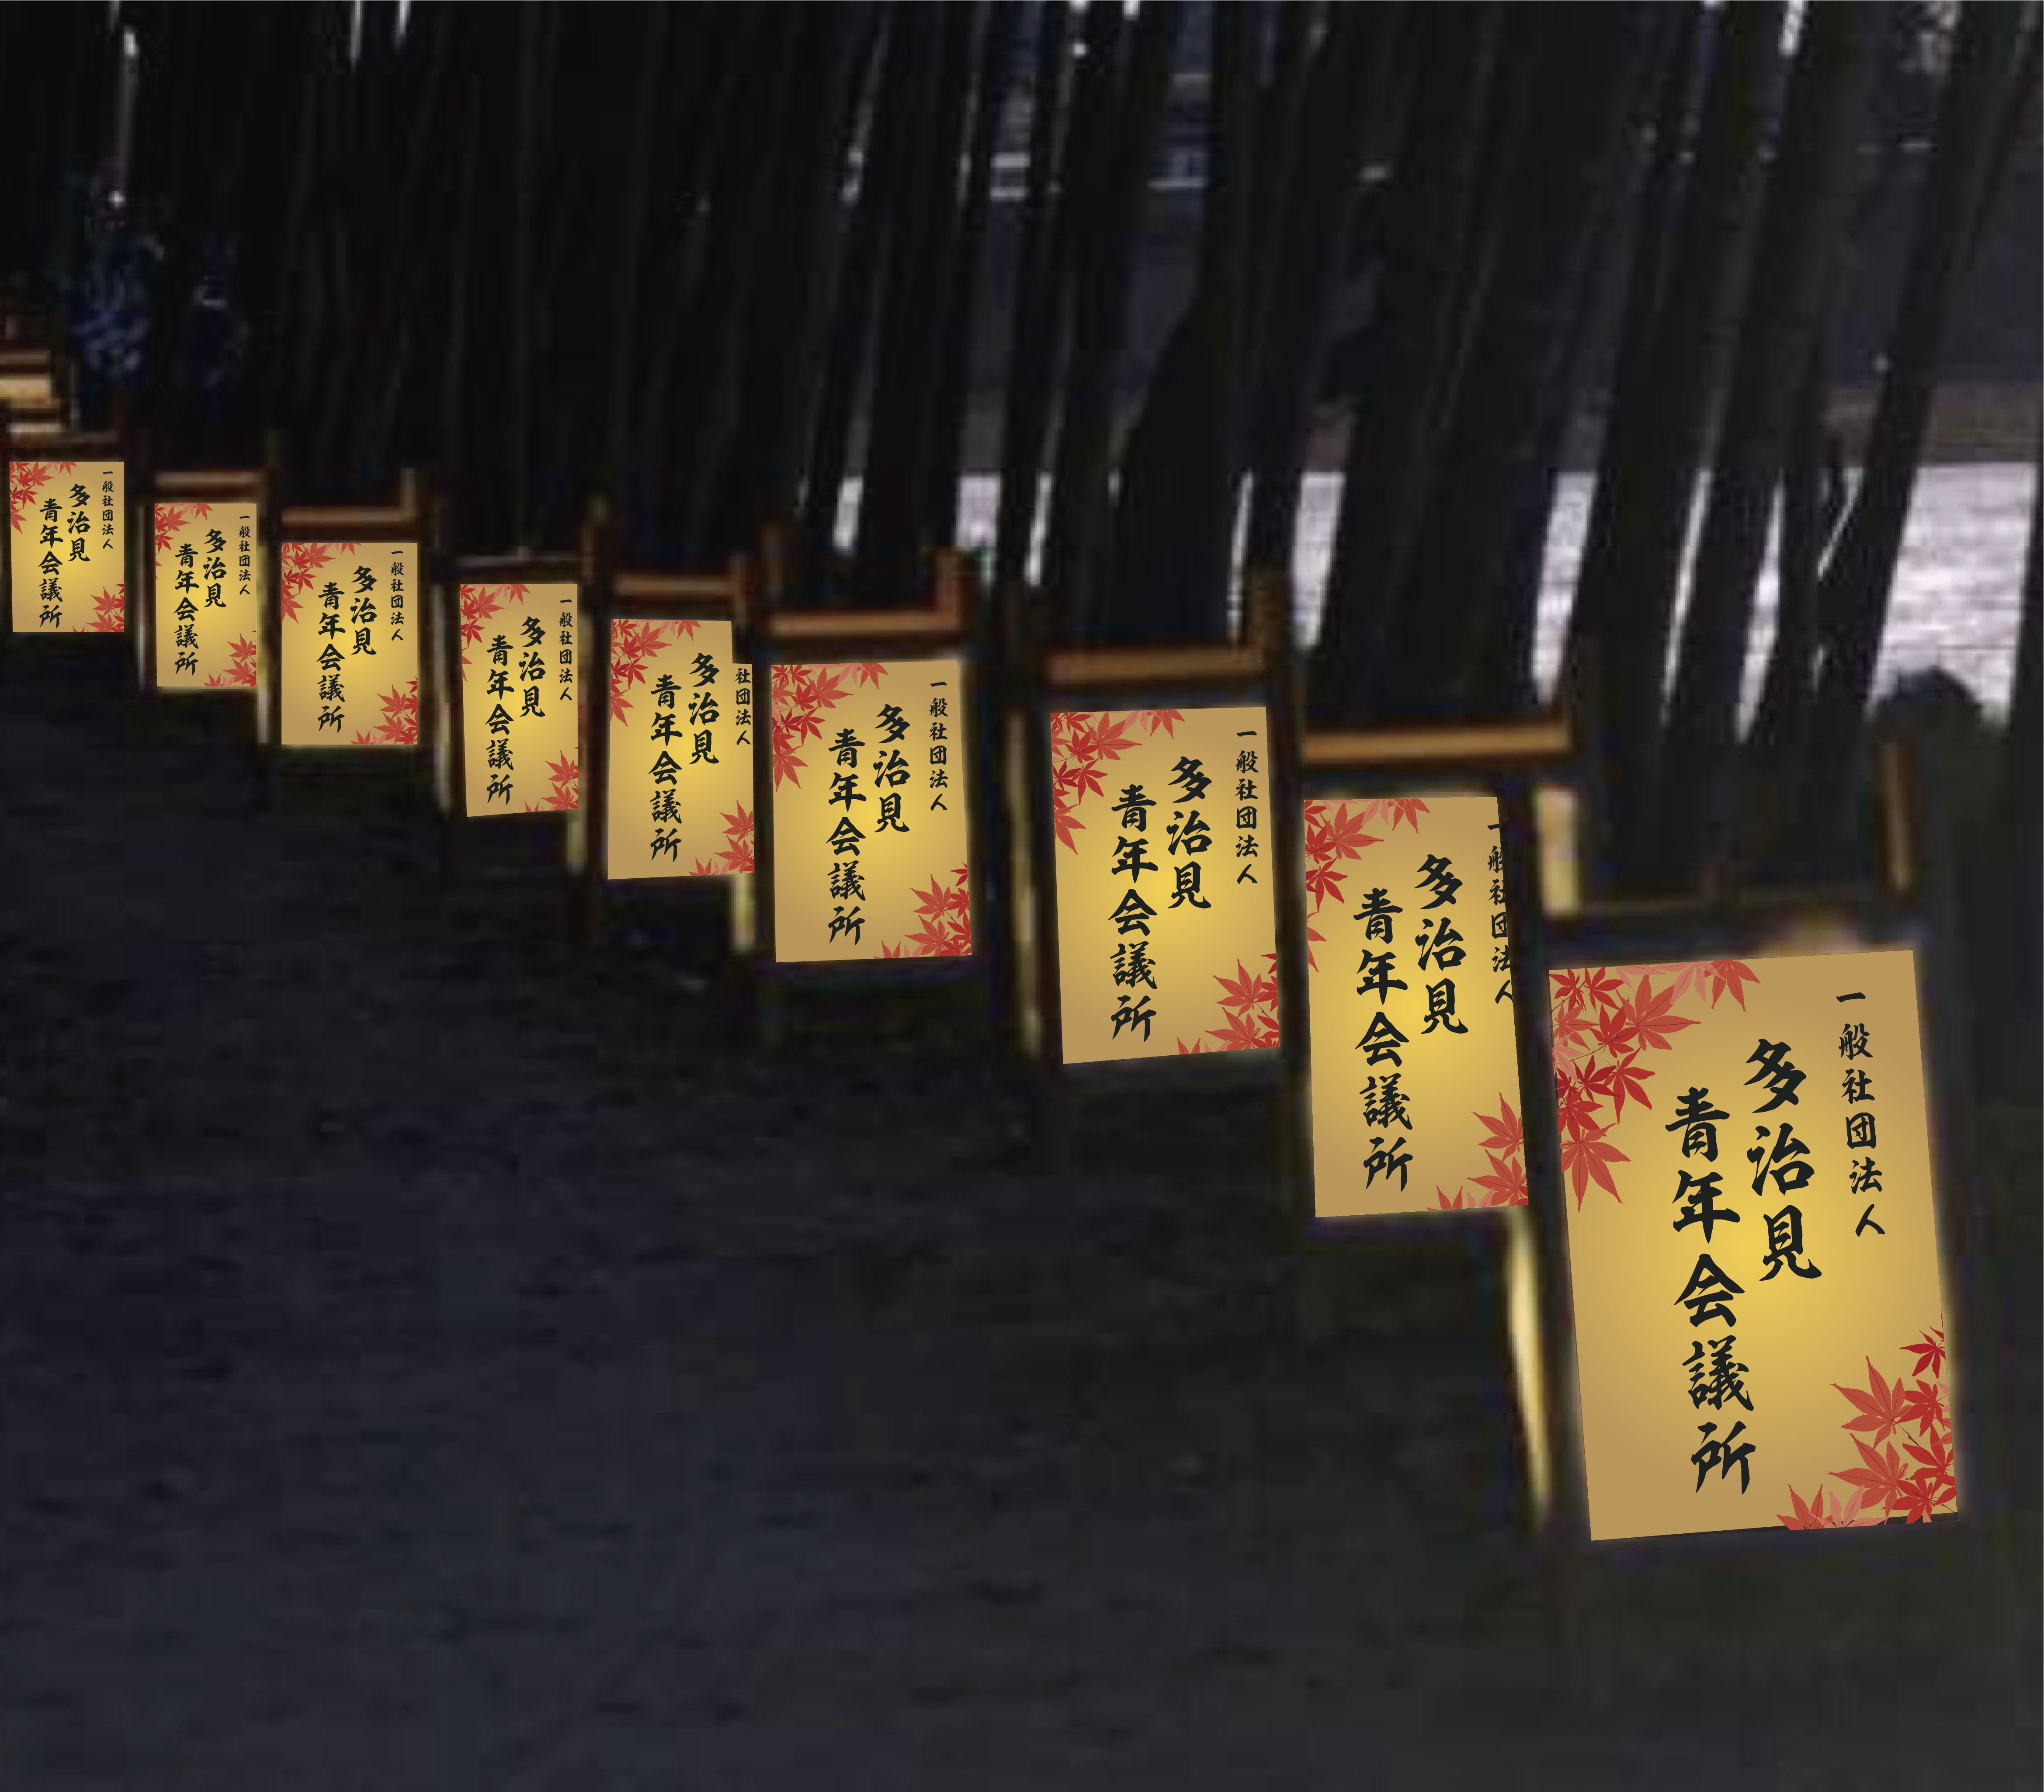 一般社団法人
多治見
青年会議所
一般社団法人
多治見
青年会議所
一般社団法人
多治見
青年会議所
一般社団法人
多治見
青年会議所
社団法人
多治見
青年会議所
一般社団法人
多治見
青年会議所
一般社団法人
多治見
青年会議所
一般社団法人
多治見
青年会議所
一般社団法人
多治見
青年会議所